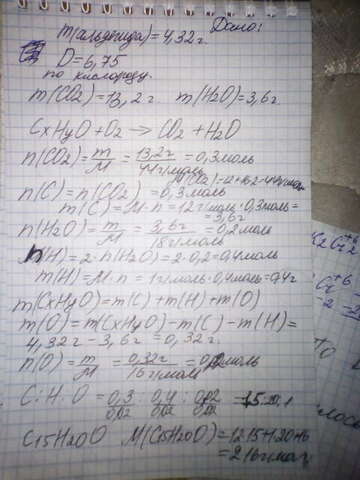 Дано:
m(альдегида)=4,32г.
D=6,75
по кислороду.
m(CO2)=13,2г. m(H2O)=3,6г.
CxHyO+O2→CO2+H2O
n(CO2)=m/M=13,2г/44г/моль=0,3моль
n(C)=n(CO2)=0,3моль
m(C)=M·n=12г/моль·0,3моль=
=3,6г
n(H2O)=m/M=3,6г/18г/моль=0,2моль
n(H)=2·n(H2O)=2·0,2=0,4моль
m(H)=M·n=1г/моль·0,4моль=0,4г
m(CxHyO)=m(C)+m(H)+m(O)
m(O)=m(CxHyO)-m(C)-m(H)=
4,32г-3,6г=0,32г.
n(O)=m/M=0,32г/16г/моль=0,02моль
C:H:O=0,3/0,02:0,4/0,02:0,02/0,02=15:20:1
C15H20O M(C15H20O)=12·15+1·20+16
=216г/моль